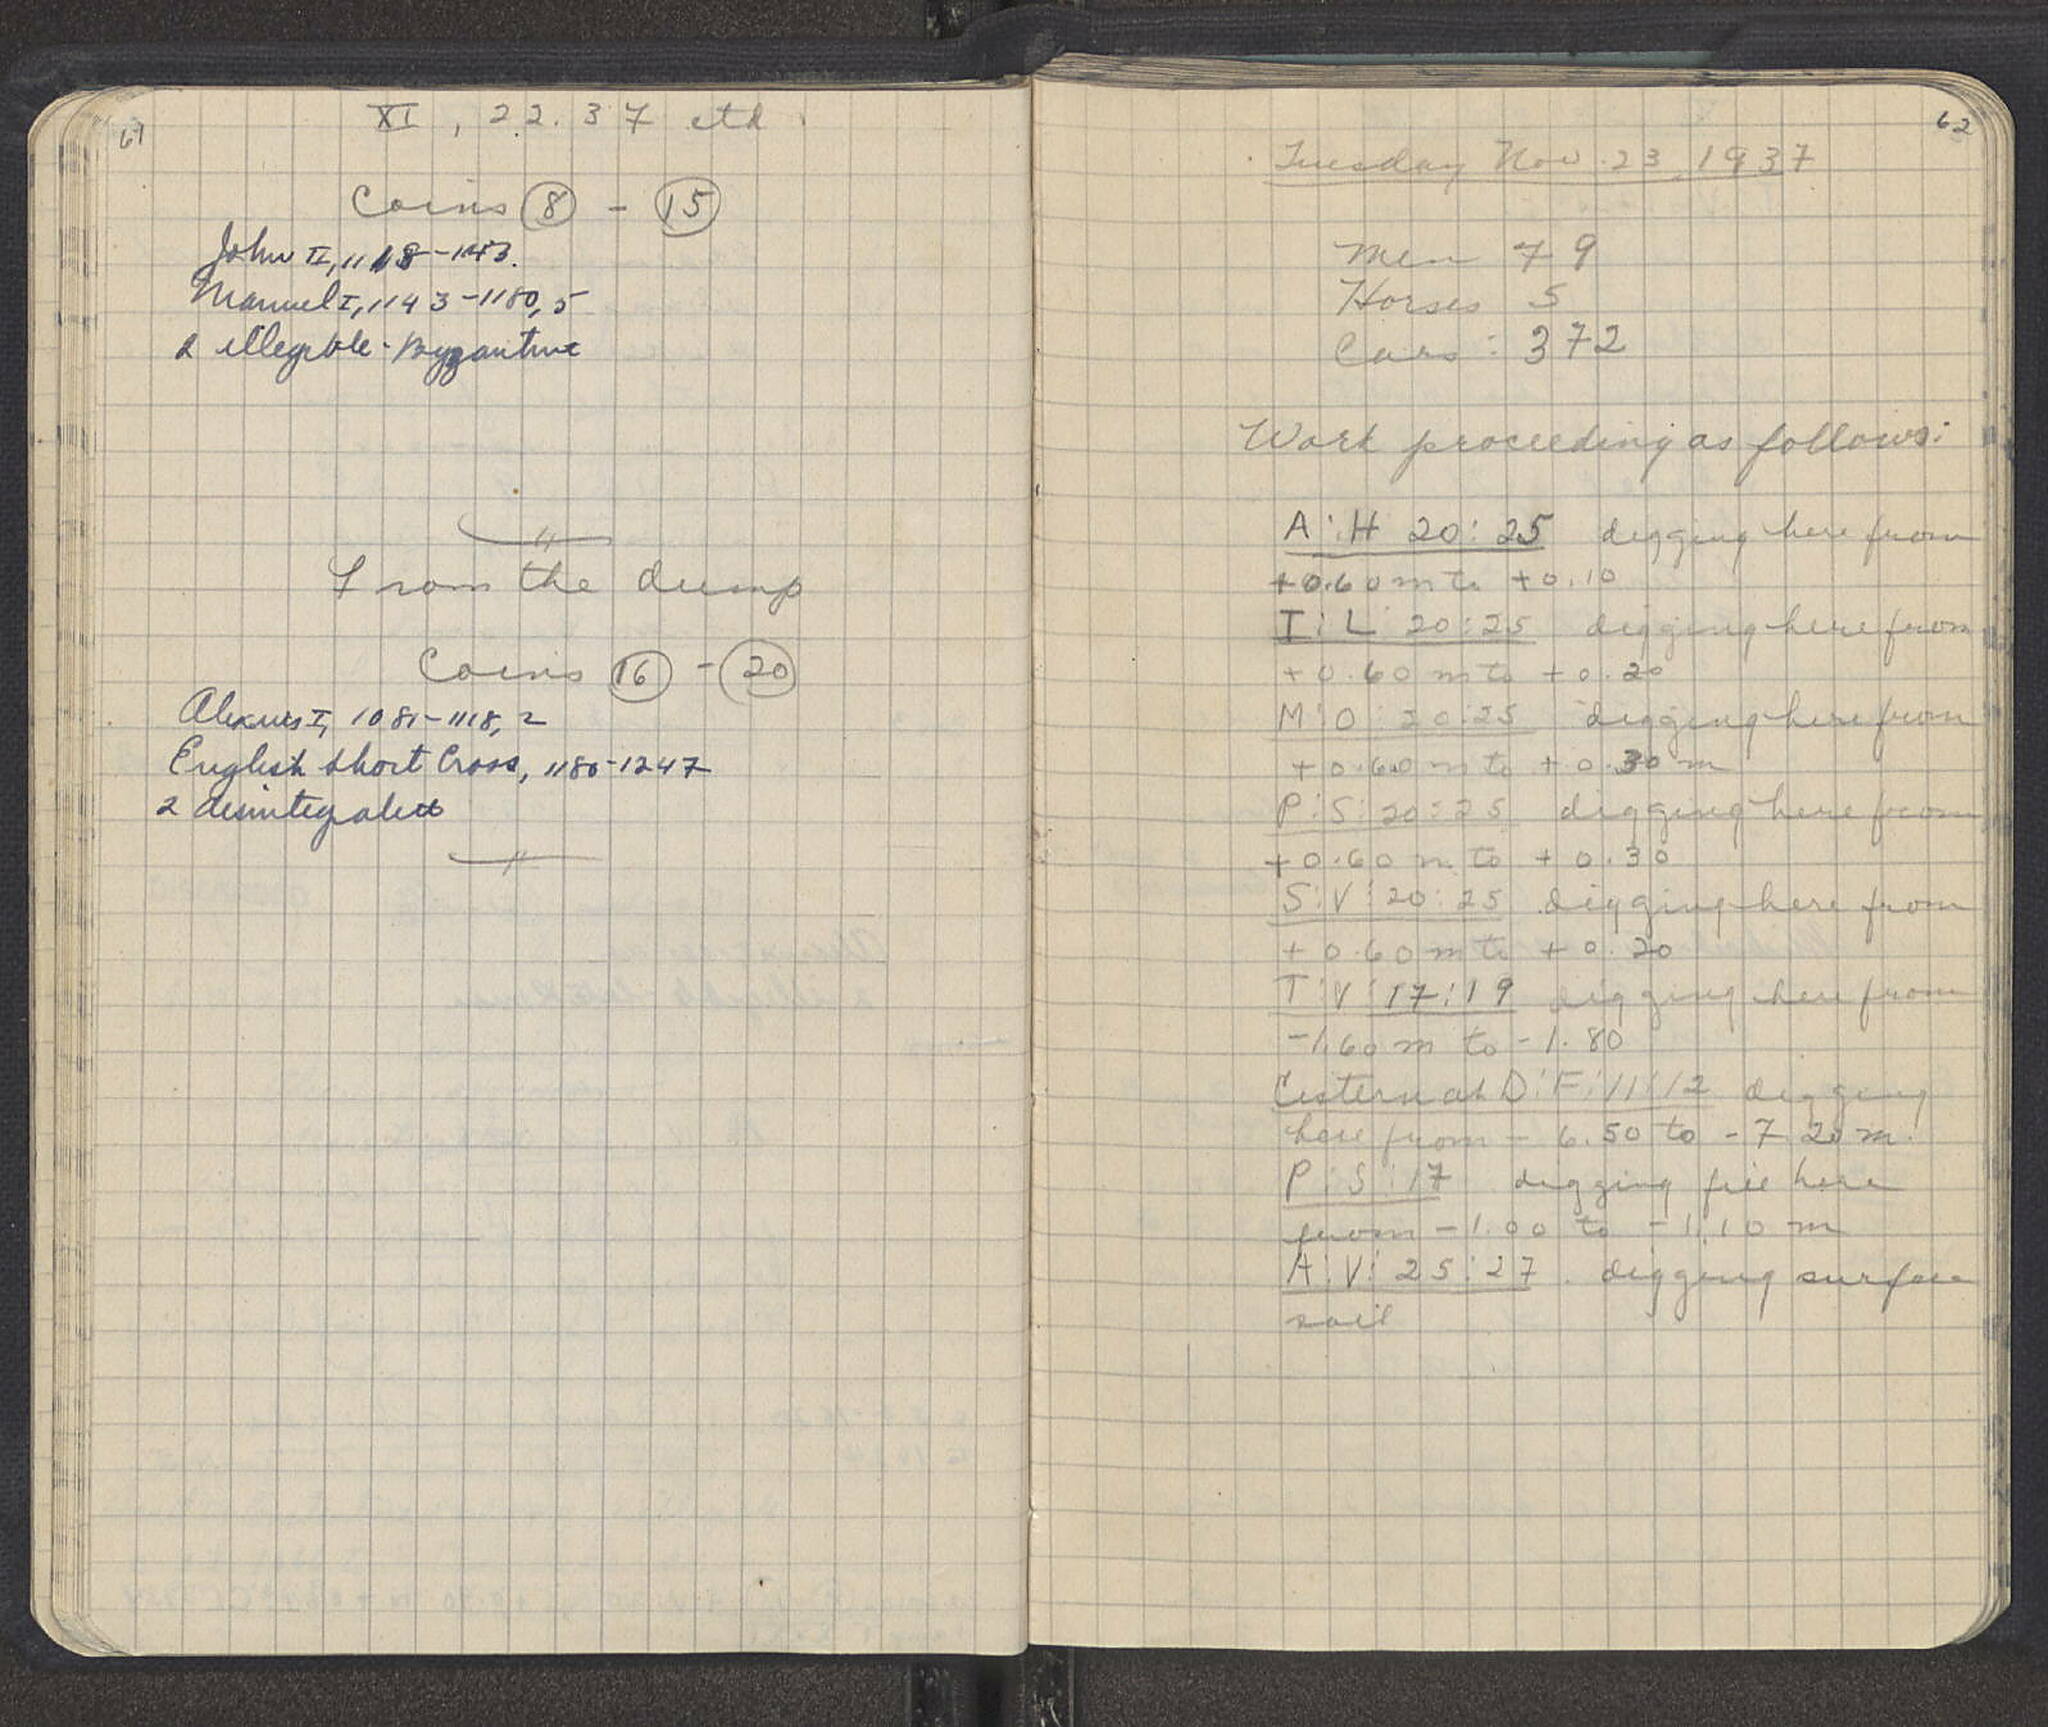 61
XI, 22.37 ctd.
Coins 8 - 15
John II, 1118-1143.
Manuel I, 1143-1180, 5
2 illegible - Byzantine
From the dump
Coins 16 - 20
Alexius I, 1081-1118, 2
English Short Cross, 1180-1247
2 disintegrated
62
Tuesday Nov. 23, 1937
Men 79
Horses 5
Cars: 372
Work proceeding as follows:
A:H 20:25 digging here from
+0.60 m to +0.10
I:L 20:25 digging here from
+0.60 m to +0.20
M:O:20:25 digging here from
+0.60 m to +0.30 m
P:S:20:25 digging here from
+0.60 m to +0.30
S:V:20:25 digging here from
+0.60 m to +0.20
T:V:17:19 digging here from
-1.60 m to -1.80
Cistern at D:F:11:12 digging
here from - 6.50 to - 7.20 m.
P:S:17 digging fill here
from -1.00 to -1.10 m
A:V:25:27. digging surface
soil